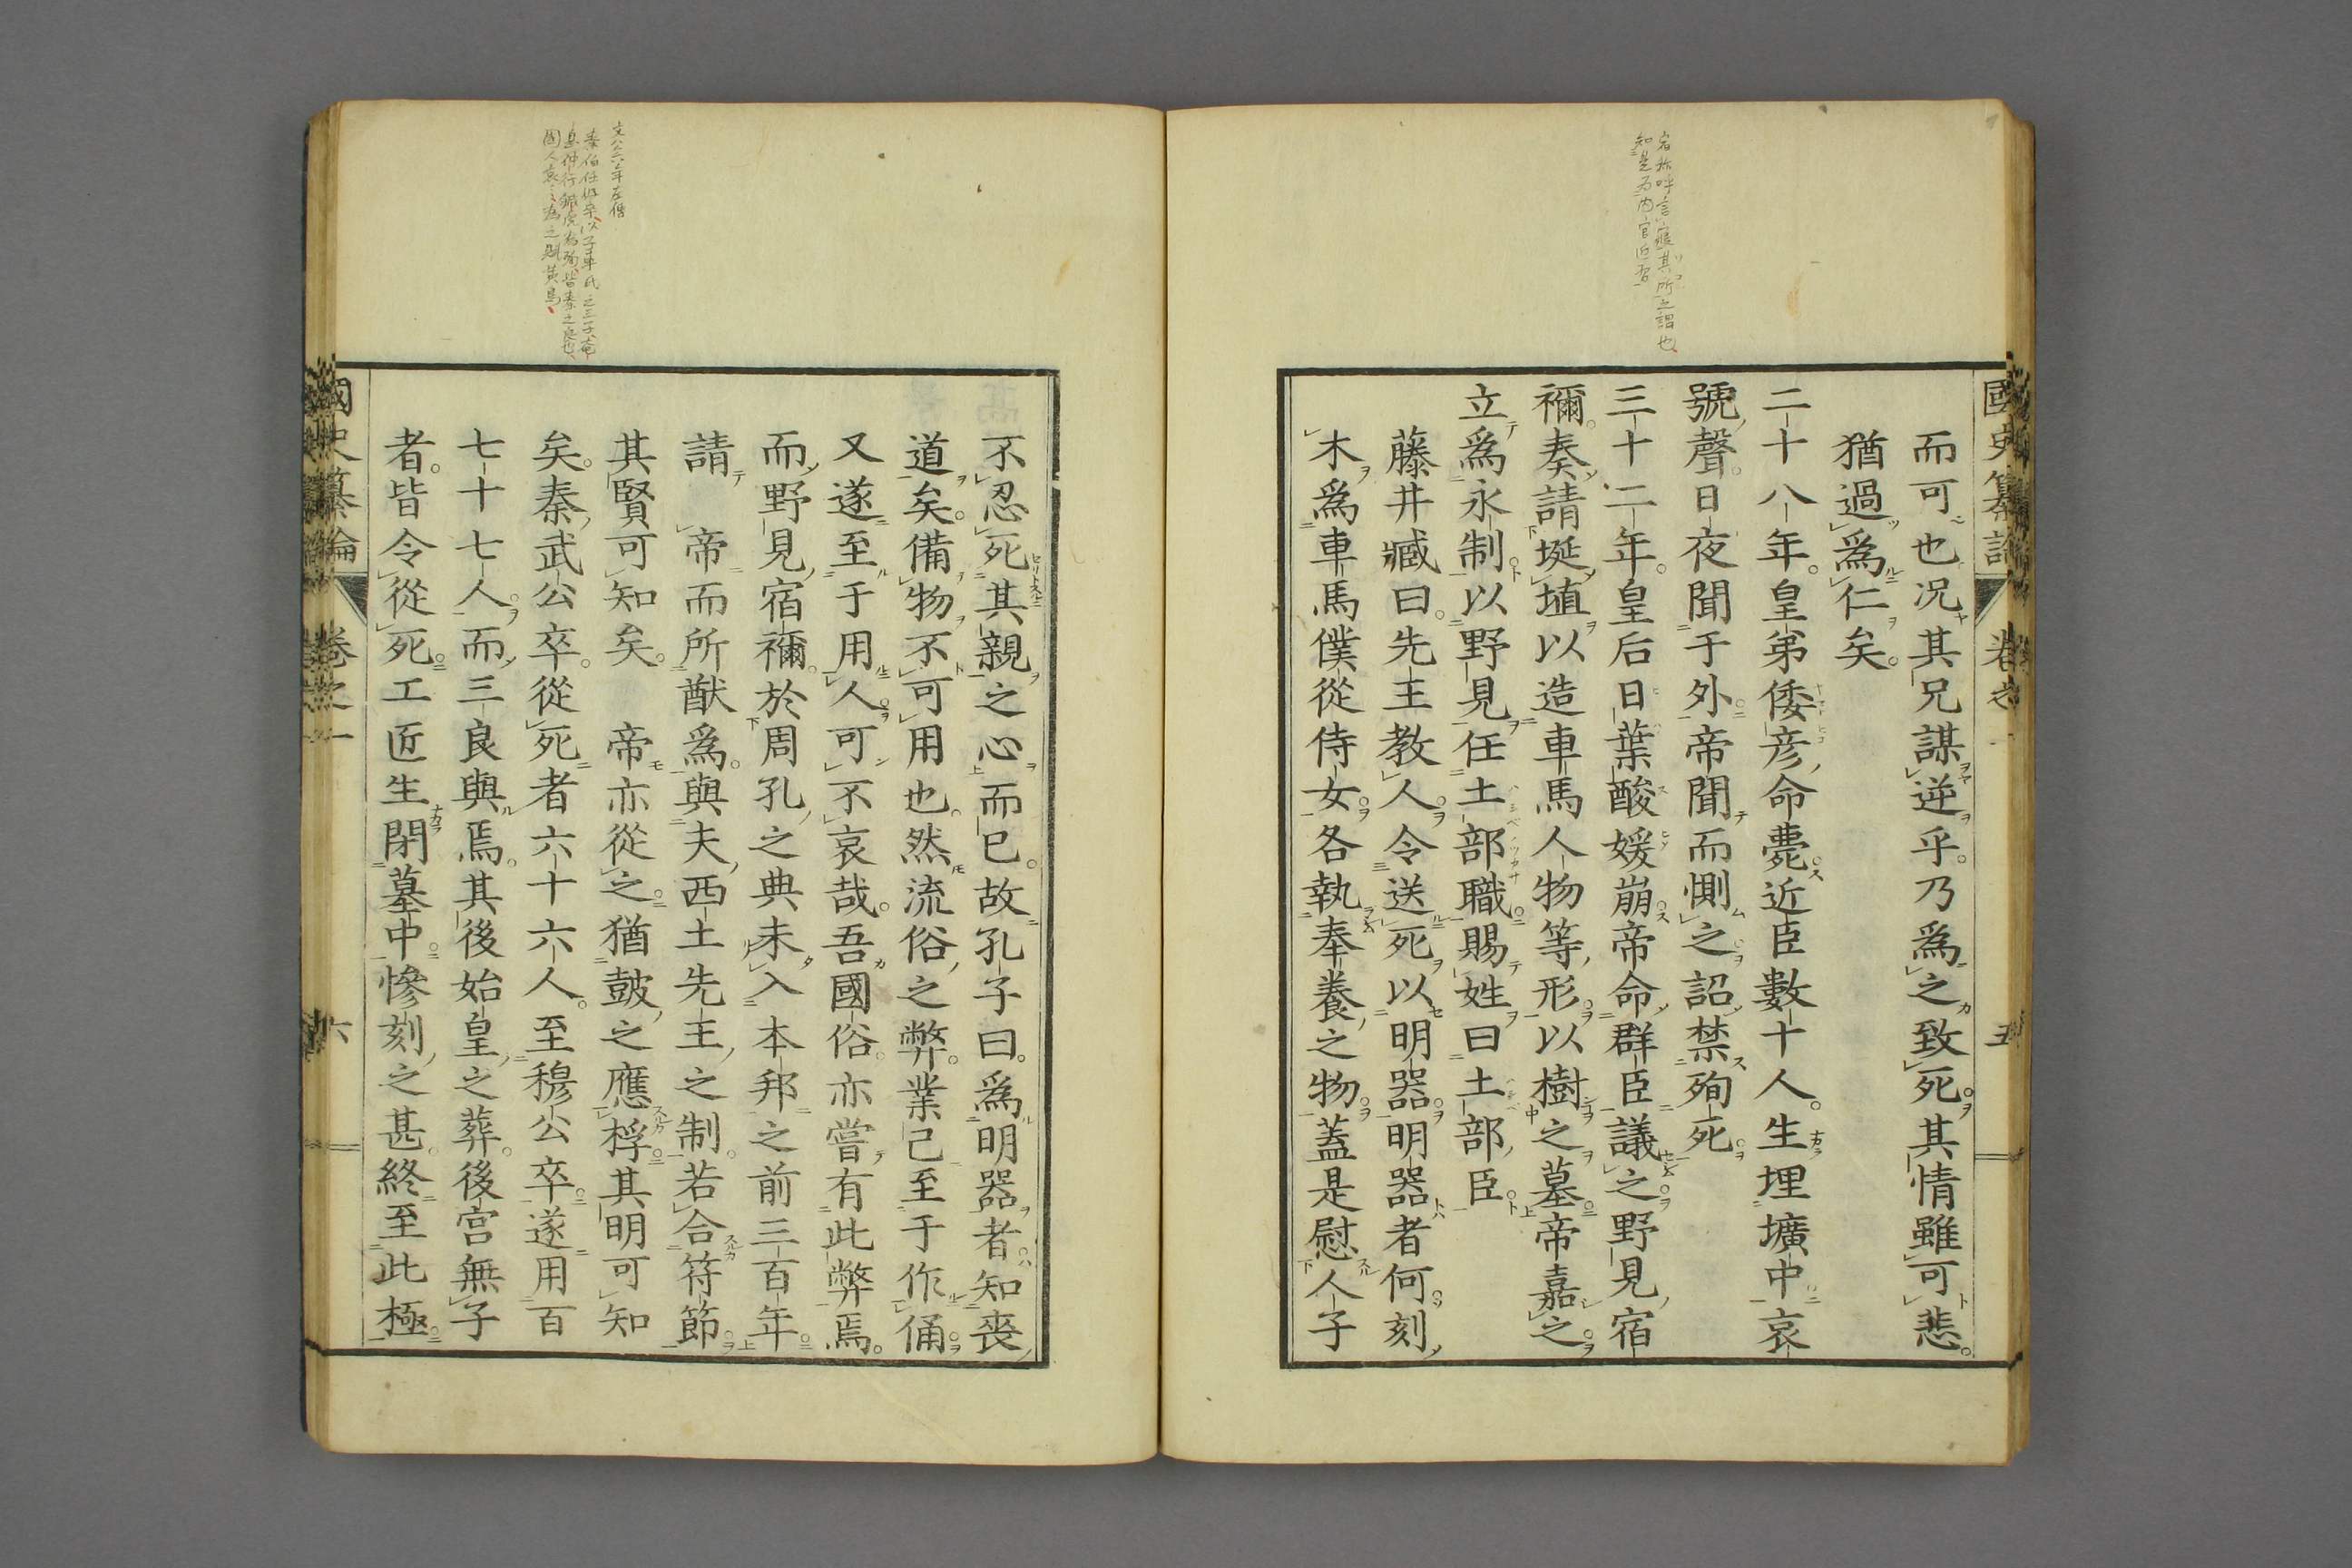 宿祢呼言寢其所之謂也
知是為內官近習
國史纂論
卷之一
五
而可也况其兄謀逆乎。乃爲之致死。其情雖可悲。
猶過爲仁矣。
二十八年。皇弟倭彦命薨。近臣數十人。生埋壙中。哀
號聲。日夜聞于外。帝聞而惻之。詔禁殉死。
三十二年。皇后日葉酸媛崩。帝命群臣議之。野見宿
禰。奏請埏埴以造車馬人物等形。以樹之墓。帝嘉之。
立爲永制。以野見任土部職。賜姓曰土部臣。
藤井臧曰。先王教人。令送死以明器。明器者何。刻
木爲車馬僕從侍女。各執奉養之物。蓋是慰人子
文公六年左傳
秦伯任好卒、以子車氏之三子、奄
息仲行鍼虎為殉、皆秦之良也、
國人哀之為之賦黃鳥、
不忍死其親之心而已。故孔子曰。爲明器者。知喪
道矣。備物不可用也。然流俗之弊。業已至于作俑。
又遂至于用人。可不哀哉。吾國俗。亦嘗有此弊焉。
而野見宿禰。於周孔之典未入本邦之前三百年。
請　帝而所猷爲。與夫西土先王之制。若合符節。
其賢可知矣。　帝亦從之。猶鼓之應桴。其明可知
矣。秦武公卒。從死者六十六人。至穆公卒。遂用百
七十七人。而三良與焉。其後始皇之葬。後宮無子
者。皆令從死。工匠生閉墓中。慘刻之甚。終至此極。
國史纂論
卷之一
六